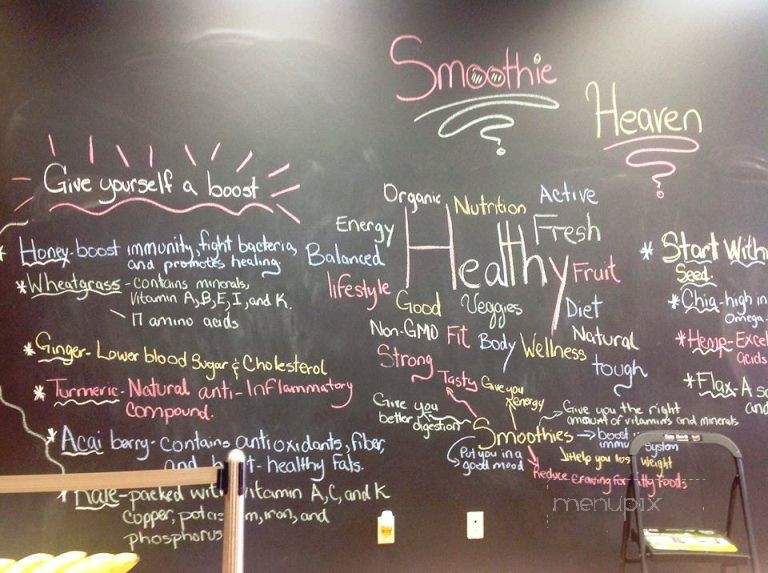 Smoothie
Heaven
Give yourself a boost
* Honey-boost immunity, fight bacteria,
and promotes healing
* Wheatgrass-contains minerals,
Vitamin A,B,E,I, and K.
amino acids
* Ginger-Lower blood Sugar & Cholesterol
* Turmeric-Natural anti-Inflammatory
compound.
* Acai berry-contains antioxidants, fiber,
and -healthy fats.
Kale-packed with vitamin A,C, and K
copper, iron, and
phosphorus
Organic
Nutrition
Active
Energy
Healthy
Fresh
Balanced
lifestyle
Fruit
Good
Veggies
Diet
Non-GMO
Fit
Body
Wellness
Natural
Strong
tough
Tasty
Give you
energy
Give you
better digestion
Give you the right
amount of vitamins and minerals
Smoothies
boost
system
Put you in a
good mood
Help you
weight
Reduce craving for foods
* Start With
Seed.
* Chia-high in
Omega-
* Hemp-
acids
* Flax-A
and
menupix